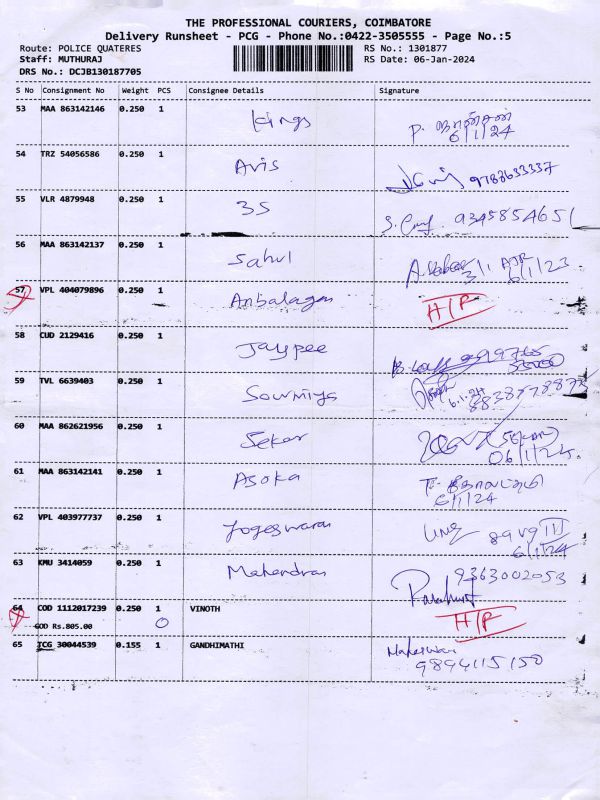 THE PROFESSIONAL COURIERS, COIMBATORE
Delivery Runsheet - PCG - Phone No.:0422-3505555 - Page No.:5
Route: POLICE QUATERES RS No.: 1301877
Staff: MUTHURAJ RS Date: 06-Jan-2024
DRS No.: DCJB130187705
S No Consignment No Weight PCS Consignee Details Signature
53 MAA 863142146 0.250 1 Kings P.
6/1/24
54 TRZ 54056586 0.250 1 Avis 9788633337
55 VLR 4879948 0.250 1 3S 9345854651
56 MAA 863142137 0.250 1 Sahul
6/1/23
57 VPL 404079896 0.250 1 Anbalagan H/P
58 CUD 2129416 0.250 1 Jaypee
59 TVL 6639403 0.250 1 Sowmiya
6.1.24
60 MAA 862621956 0.250 1 Sekar
06/1/24.
61 MAA 863142141 0.250 1 Asoka
6/1/24
62 VPL 403977737 0.250 1 Yogeswaran
6/1/24
63 KMU 3414059 0.250 1 Mahendran 9363002053
64 COD 1112017239 0.250 1 VINOTH H/P
COD Rs.805.00 O
65 TCG 30044539 0.155 1 GANDHIMATHI Maheswari
9894115150